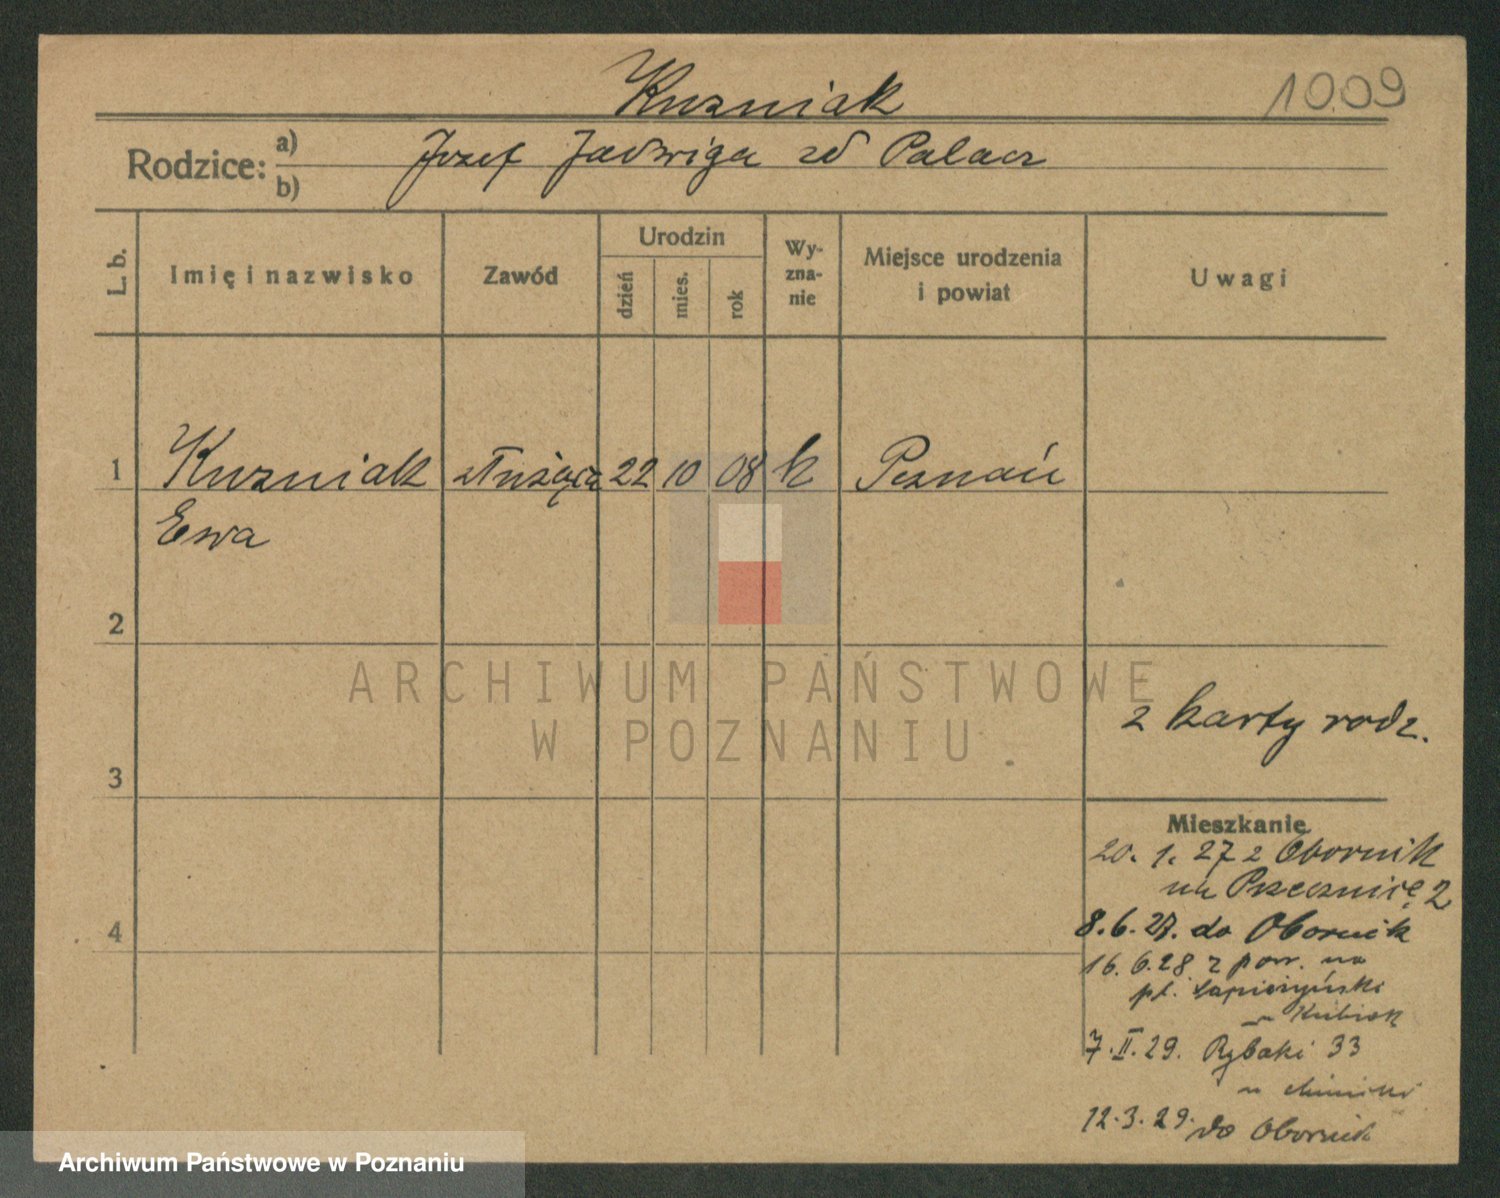 Kuzniak
1009
Rodzice: a) Jozef Jadwiga zd Palacz
b)
L. b.
Imię i nazwisko
Zawód
Urodzin
dzień
mies.
rok
Wy-
zna-
nie
Miejsce urodzenia
i powiat
Uwagi
1 Kuzniak służąca 22 10 08 k Poznań
Ewa
2
3
4
z karty rodz.
Mieszkanie
20. 1. 27 z Obornik
na Przecznicę 2
8.6.28. do Obornik
16.6.28 z pow. na
pl. Sapieżyński
Kubiak
7.II.29. Rybaki 33
12.3.29. do Obornik
ARCHIWUM PAŃSTWOWE
W POZNANIU
Archiwum Państwowe w Poznaniu